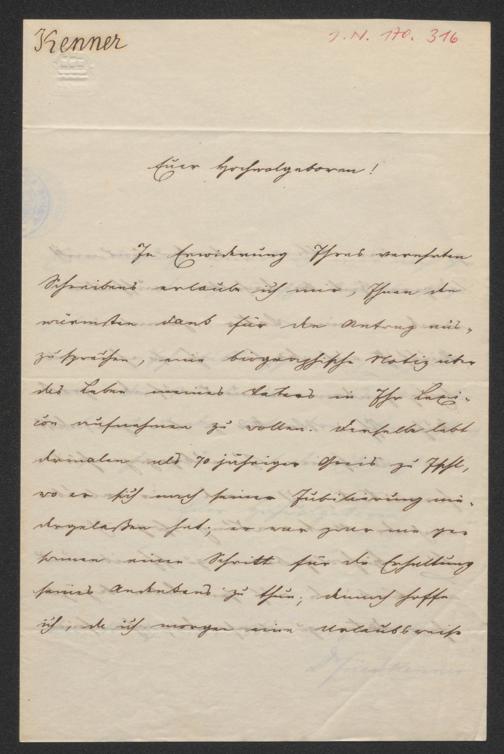 Kenner
J. N. 170.316
Euer Hochwolgeboren!
In Erwiderung Ihres verehrten
Schreibens erlaube ich mir, Ihnen den
wärmsten Dank für den Antrag aus-
zusprechen, eine biographische Notiz über
das Leben meines Vaters in Ihr Lexi-
con aufnehmen zu wollen. Derselbe lebt
dermalen als 70 jähriger Greis zu Ischl,
wo er sich nach seiner Jubilierung nie-
dergelaßen hat; er war zwar nie
einen Schritt für die Erhaltung
seines Andenkens zu thun; dennoch hoffe
ich, da ich morgen eine Urlaubsreise